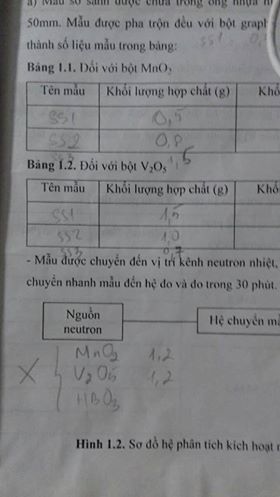 a) Mẫu so sánh được chứa trong ống nhựa
50mm. Mẫu được pha trộn đều với bột
thành số liệu mẫu trong bảng: SS1
Bảng 1.1. Đối với bột MnO₂
Tên mẫu Khối lượng hợp chất (g) Khố
SS1 0,5
SS2 0,8
SS3 1,5
Bảng 1.2. Đối với bột V₂O₅
Tên mẫu Khối lượng hợp chất (g) Khố
SS1 1,5
SS2 1,0
SS3 0,7
- Mẫu được chuyển đến vị trí kênh neutron nhiệt,
chuyển nhanh mẫu đến hệ đo và đo trong 30 phút.
Nguồn
neutron
Hệ chuyển mẫ
MnO₂ 1,2
X V₂O₅ 1,2
HBO₃
Hình 1.2. Sơ đồ hệ phân tích kích hoạt